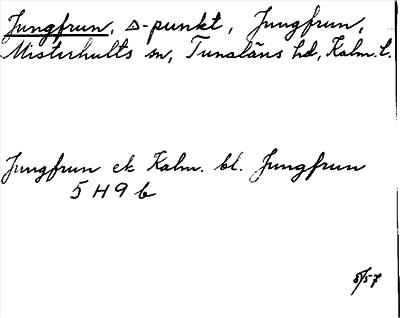 Jungfrun, △-punkt, Jungfrun,
Misterhults sn, Tunaläns hd, Kalm. l.
Jungfrun ek Kalm. bl. Jungfrun
5 H 9 b
8/57